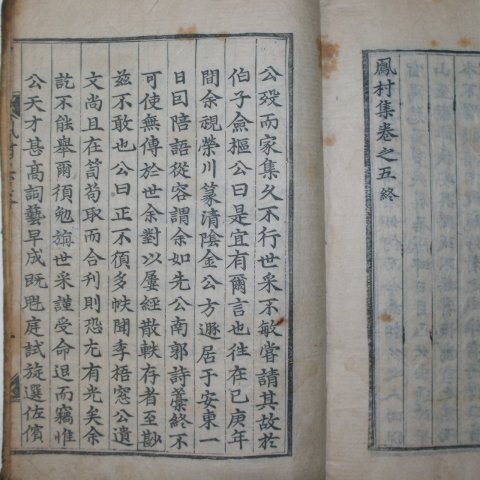 鳳村集卷之五終
公歿而家集久不行世采不敏嘗請其故於
伯子僉樞公曰是宜有爾言也往在己庚年
間余視榮川篆清陰金公方遯居于安東一
日囙陪語從容謂余如先公南郭詩藁終不
可使無傳於世余對以屢經散軼存者至尠
玆不敢也公曰正不須多帙聞季梧窓公遺
文尚且在笥苟取而合刋則恐尤有光矣余
訖不能舉爾須勉旃世采謹受命退而竊惟
公天才甚高詞藝早成既魁庭試旋選佐儐